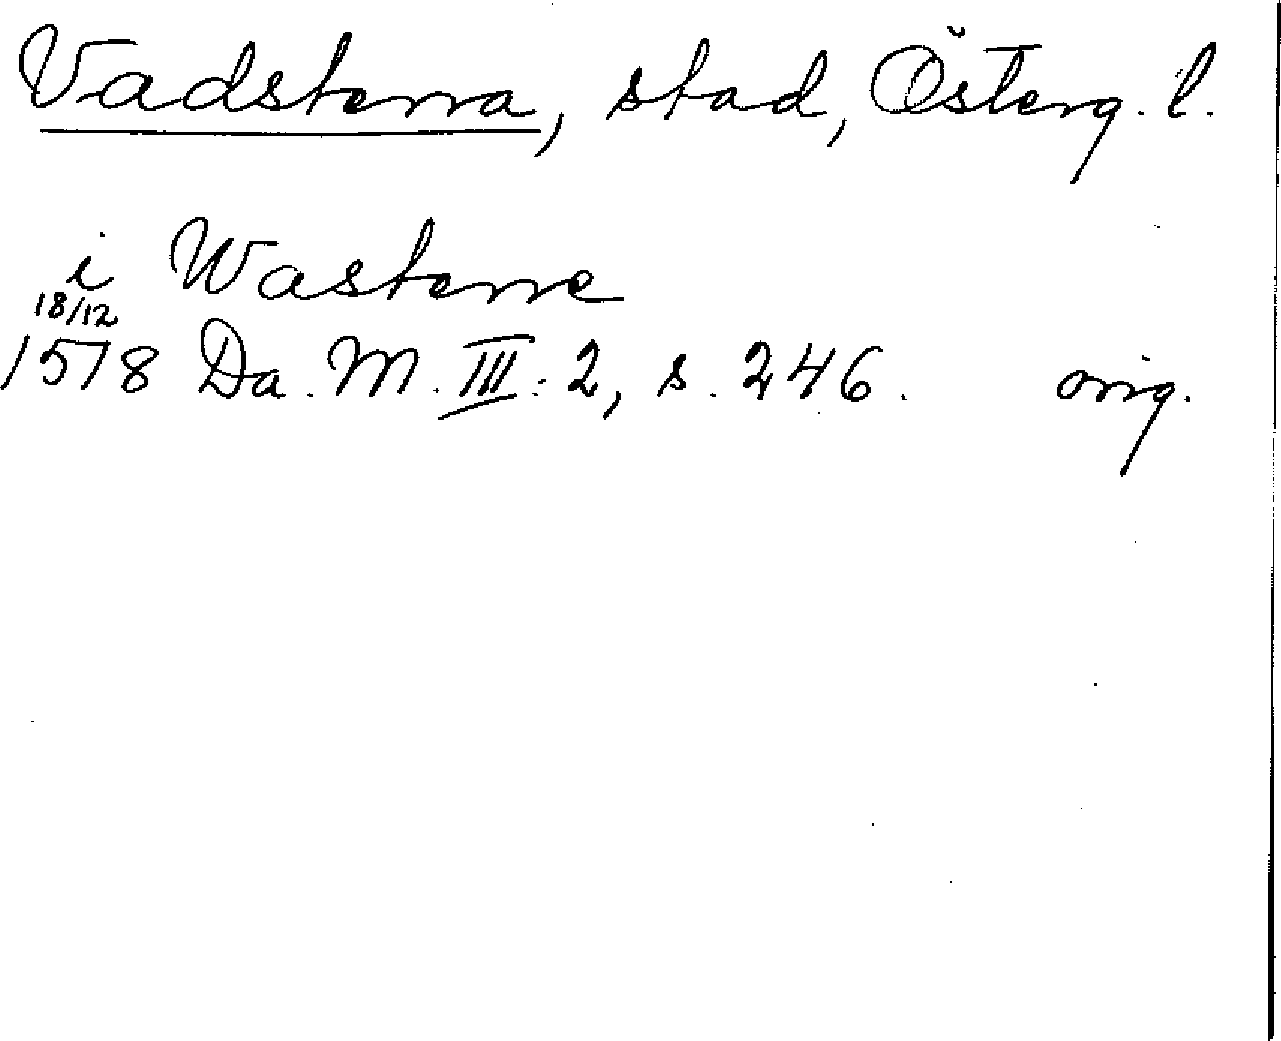 Vadstena, stad, Österg. l.
i Wastenne
18/12
1578 Da. M. III: 2, s. 246. orig.